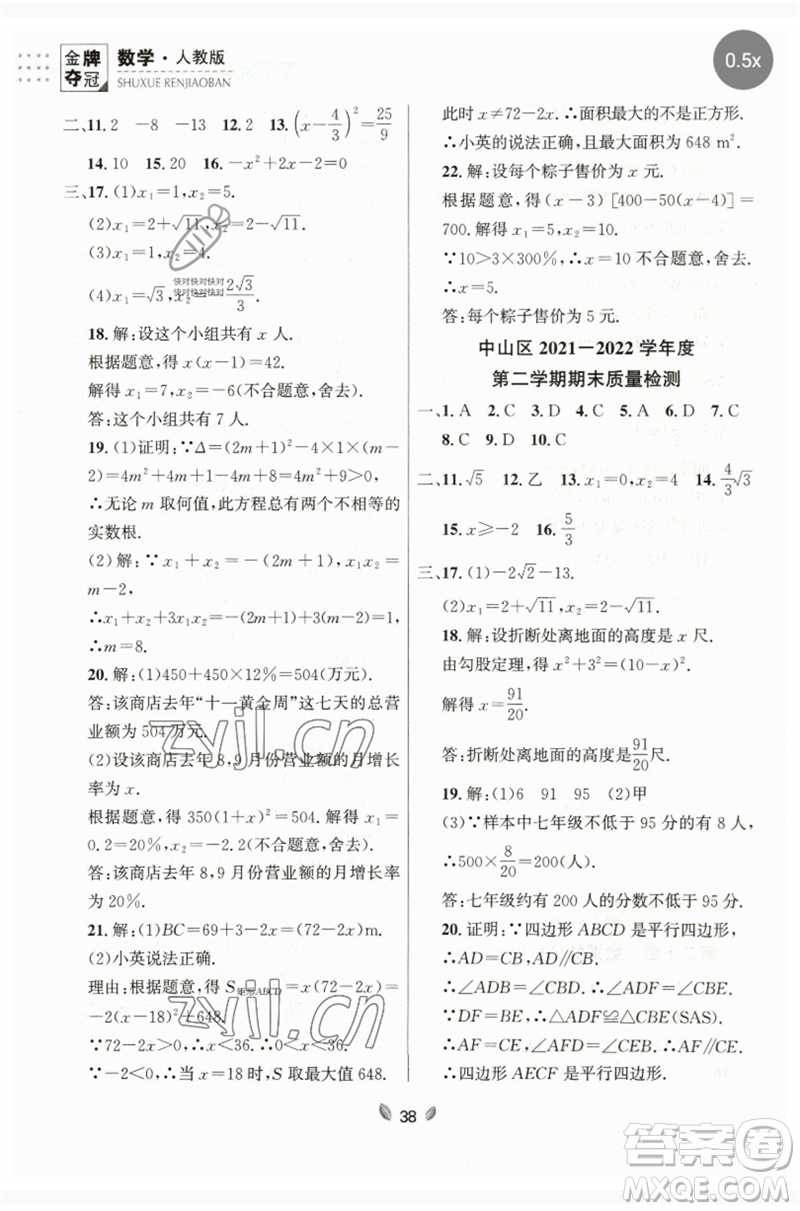 金牌夺冠 数学·人教版
SHUXUE RENJIAOBAN
0.5x
二、11. 2 -8 -13 12. 2 13. (x-4/3)²=25/9
14. 10 15. 20 16. -x²+2x-2=0
三、17. (1)x₁=1,x₂=5.
(2)x₁=2+√11,x₂=2-√11.
(3)x₁=1,x₂=4.
(4)x₁=√3,x₂=2√3/3.
快对快对快对
快对快对快对
18. 解:设这个小组共有 x 人.
根据题意,得 x(x-1)=42.
解得 x₁=7,x₂=-6(不合题意,舍去).
答:这个小组共有 7 人.
19. (1)证明:∵Δ=(2m+1)²-4×1×(m-
2)=4m²+4m+1-4m+8=4m²+9>0,
∴无论 m 取何值,此方程总有两个不相等的
实数根.
(2)解:∵x₁+x₂=-(2m+1),x₁x₂=
m-2,
∴x₁+x₂+3x₁x₂=-(2m+1)+3(m-2)=1.
∴m=8.
20. 解:(1)450+450×12%=504(万元).
答:该商店去年“十一黄金周”这七天的总营
业额为 504 万元.
(2)设该商店去年 8,9 月份营业额的月增长
率为 x.
根据题意,得 350(1+x)²=504. 解得 x₁=
0.2=20%,x₂=-2.2(不合题意,舍去).
答:该商店去年 8,9 月份营业额的月增长率
为 20%.
21. 解:(1)BC=69+3-2x=(72-2x)m.
(2)小英说法正确.
理由:根据题意,得 S矩形ABCD=x(72-2x)=
-2(x-18)²+648.
∵72-2x>0,∴x<36.∴0<x<36.
∵-2<0,∴当 x=18 时,S 取最大值 648.
此时 x≠72-2x.∴面积最大的不是正方形.
∴小英的说法正确,且最大面积为 648 m².
22. 解:设每个粽子售价为 x 元.
根据题意,得(x-3)[400-50(x-4)]=
700. 解得 x₁=5,x₂=10.
∵10>3×300%,∴x=10 不合题意,舍去.
∴x=5.
答:每个粽子售价为 5 元.
中山区 2021—2022 学年度
第二学期期末质量检测
一、1. A 2. C 3. D 4. C 5. A 6. D 7. C
8. C 9. D 10. C
二、11. √5 12. 乙 13. x₁=0,x₂=4 14. 4/3√3
15. x≥-2 16. 5/3
三、17. (1)-2√2-13.
(2)x₁=2+√11,x₂=2-√11.
18. 解:设折断处离地面的高度是 x 尺.
由勾股定理,得 x²+3²=(10-x)².
解得 x=91/20.
答:折断处离地面的高度是91/20尺.
19. 解:(1)6 91 95 (2)甲
(3)∵样本中七年级不低于 95 分的有 8 人,
∴500×8/20=200(人).
答:七年级约有 200 人的分数不低于 95 分.
20. 证明:∵四边形 ABCD 是平行四边形,
∴AD=CB,AD∥CB.
∴∠ADB=∠CBD.∴∠ADF=∠CBE.
∵DF=BE,∴△ADF≌△CBE(SAS).
∴AF=CE,∠AFD=∠CEB.∴AF∥CE.
∴四边形 AECF 是平行四边形.
38
zyjl.cn
zyjl.cn
答案圈
MXQE.COM